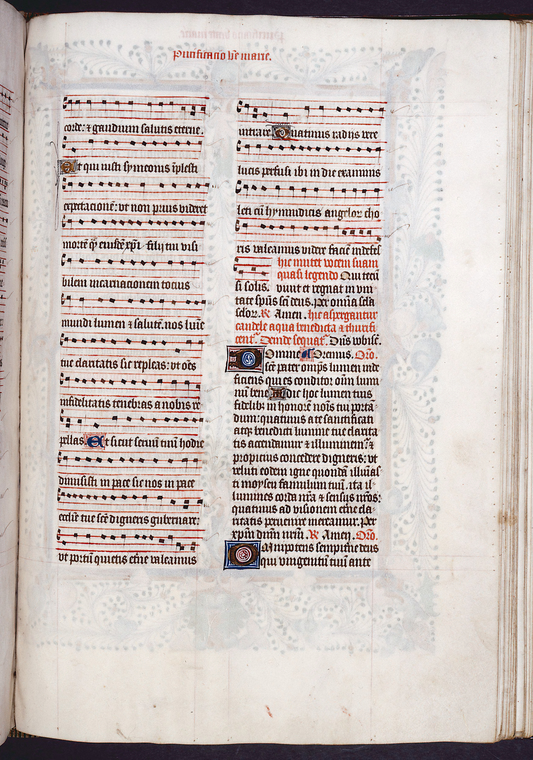 Purificatio bte marie.
corde: & gaudium salutis eterne.
Et qui iusti symeonis iplesti
expectatione: vt non prius videret
morte q̃ eiusde xp̃i filij tui visi
bilem incarnationem totius
mundi lumen & salute. nos lute
tue claritatis sic repleas: vt oẽs
infidelitatis tenebras a nobis re
pellas. Et sicut seruu tuu hodie
dimisisti in pace sic nos in pace
ecclie tue sc̃e digneris gubernare:
vt portu quietis et̃ne valeamus
intrare. Quatinus radijs vere
lucis perfusi ibi in die examinis
leti cũ hymnidicis angelor cho
ris valeamus videre facie indefec
hic mutet vocem suam
quasi legendo Qui tecũ
ti solis. viuit et regnat in vni
tate sp̃us sc̃i deus. per omnia sc̃la
sc̃lor. R Amen. hic aspergantur
candele aqua benedicta & thurifi
cent̃. Deinde sequat̃. Dñs vobisc̃.
Oremus. Or̃o.
Domine
sc̃e pater omp̃s lumen inde
ficiens qui es conditor oĩm lumi
nũ bene dic hoc lumen tuis
fidelib̃ in honore nois tui porta
dum: quatinus a te sanctificati
atq̃ benedicti lumine tue clarita
tis accendantur & illuminent̃: &
propicius concedere digneris: vt
veluti eodem igne quondã illuiãs
ti moysen famulum tuũ. ita il
lumines corda nr̃a & sensus nr̃os:
quatinus ad visionem et̃ne cla
ritatis peruenire mereamur. Per
xp̃m dñm nr̃m. R Amen. Or̃o.
Omnipotens sempiterne deus
qui vnigenitũ tuũ ante